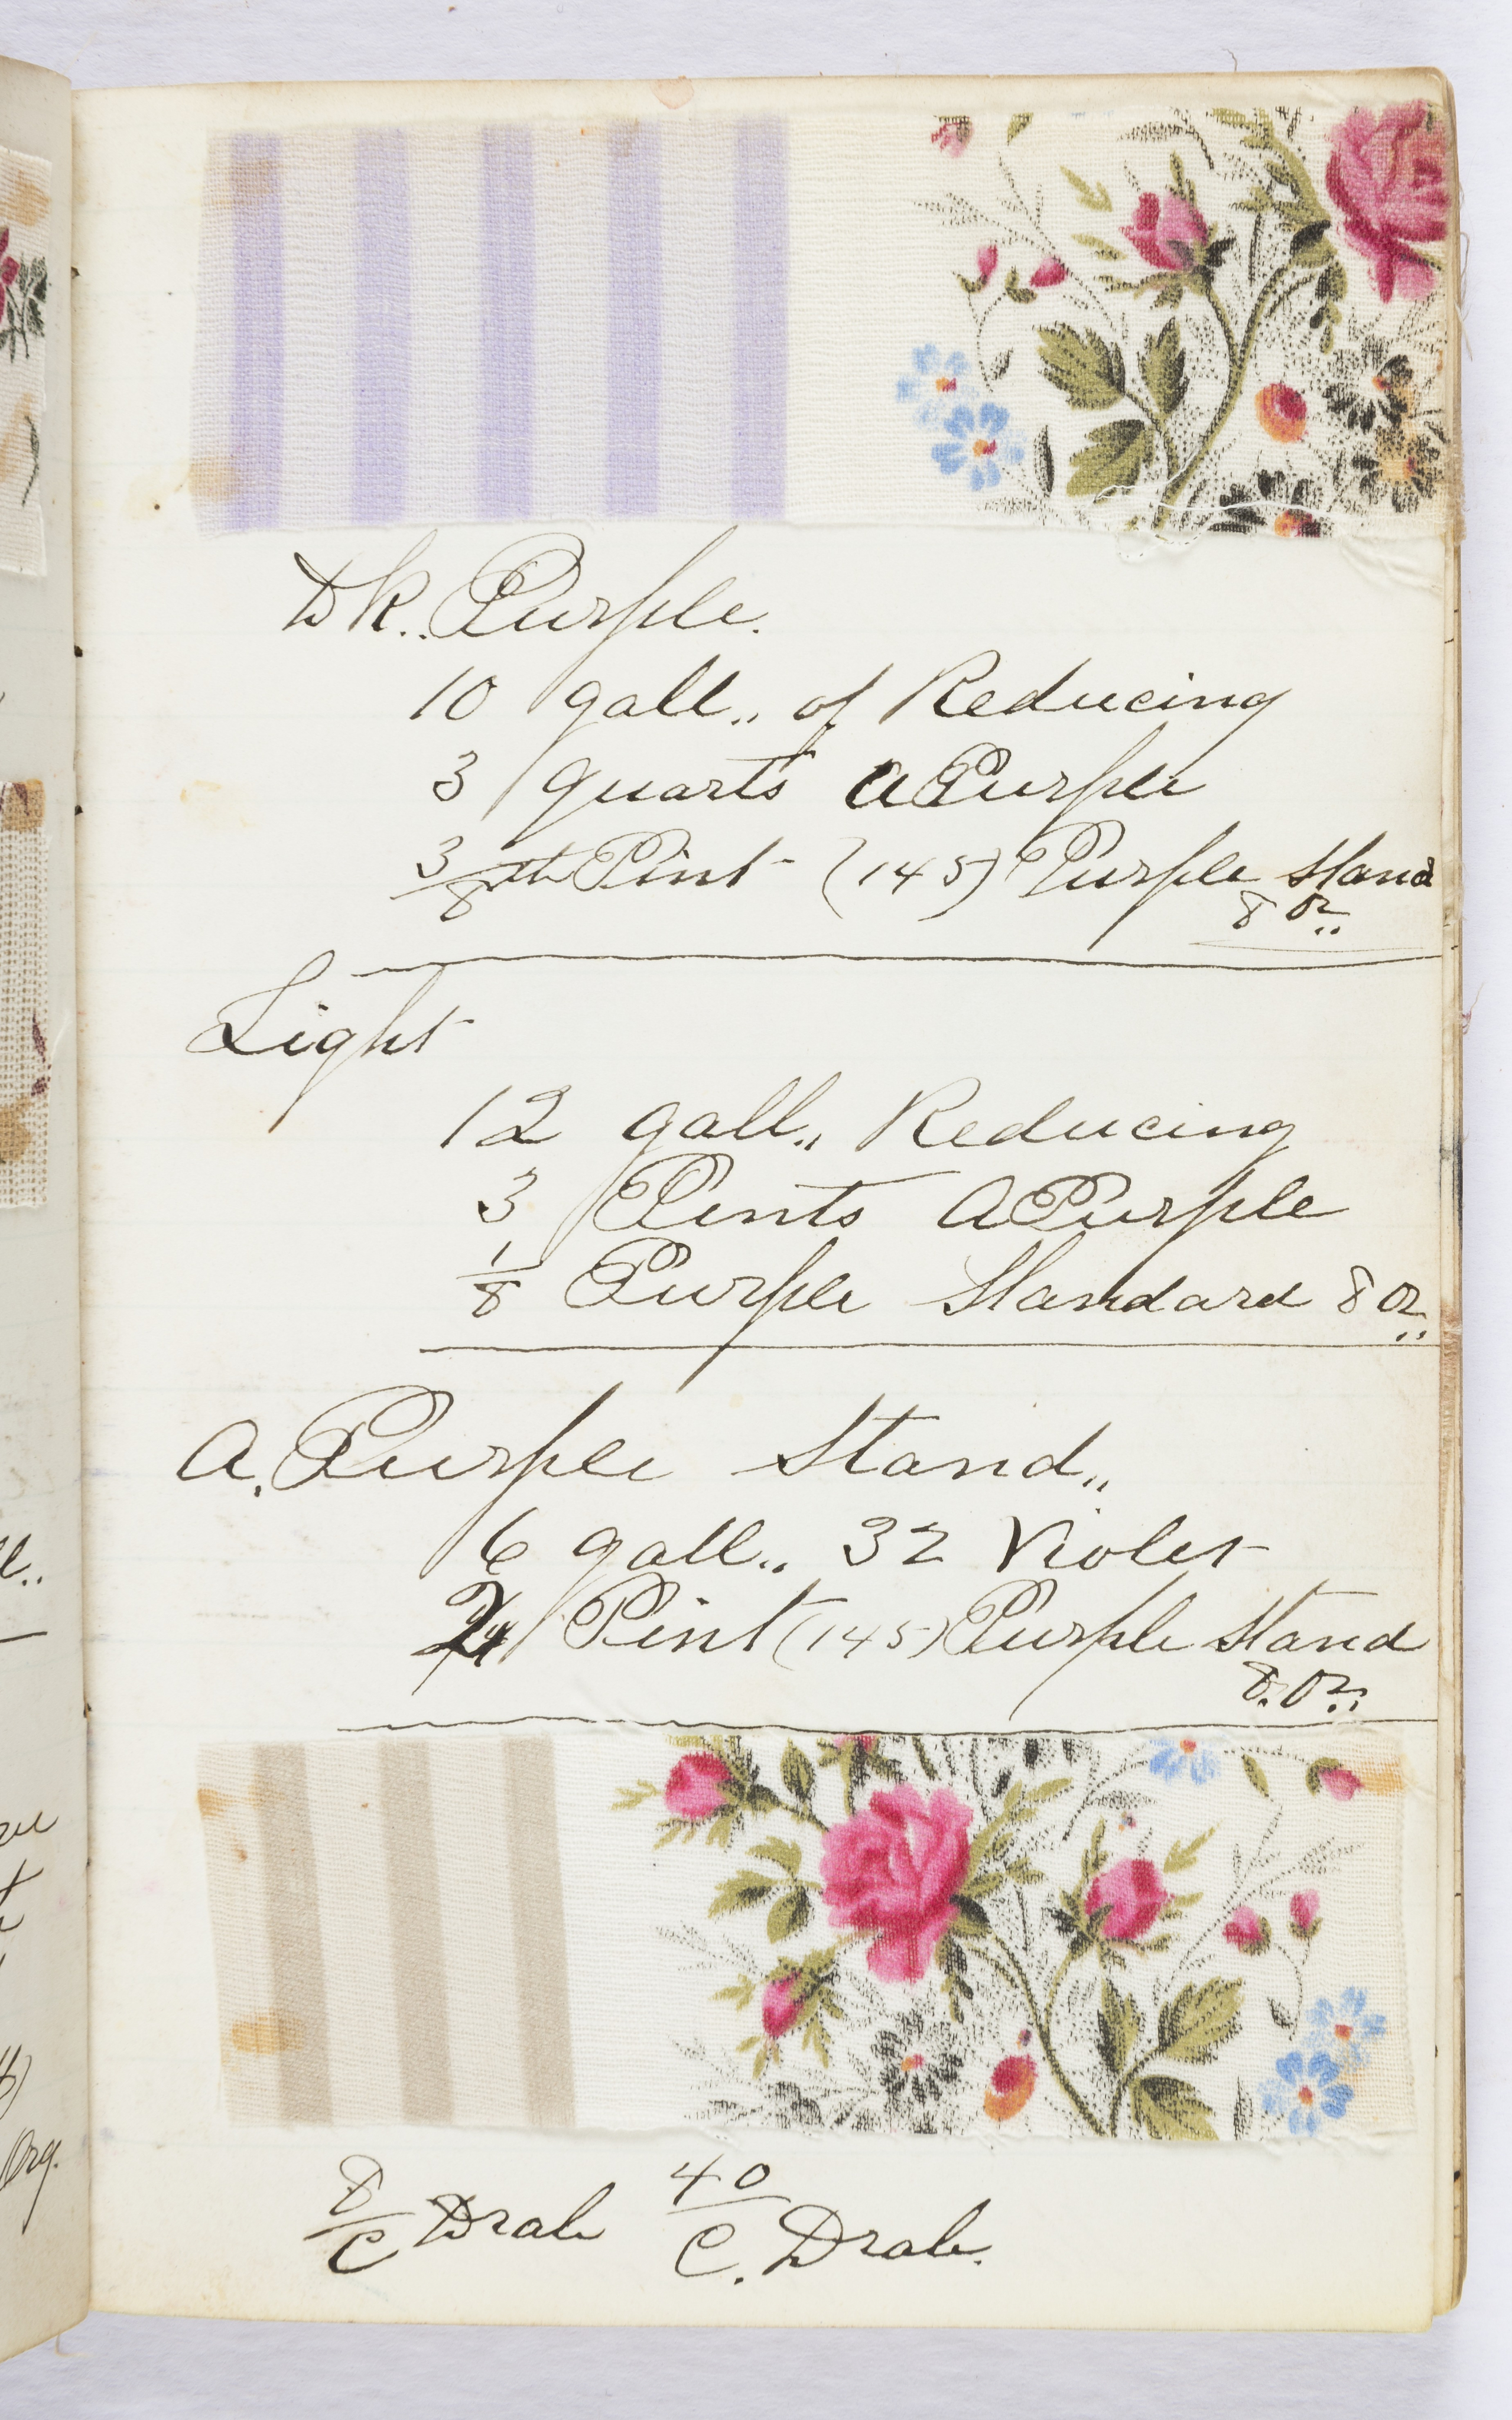 Dk.. Purple.
10 gall.. of Reducing
3 quarts A Purple
3/8th Pint (145) Purple Stand
8 oz..
Light
12 gall.. Reducing
3 Pints A Purple
1/8 Purple Standard 8 oz..
A. Purple Stand..
6 gall.. 32 Violet
Pint (145) Purple Stand
8. oz..
8/C Drab 40/C. Drab.